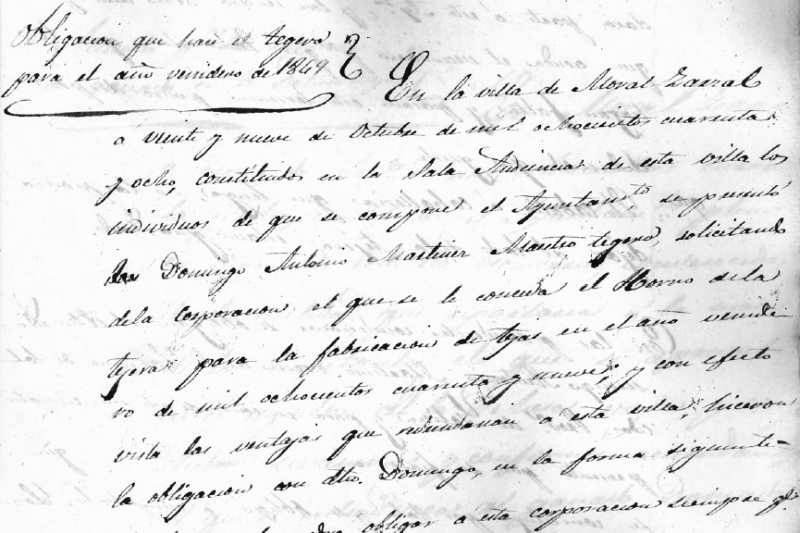 Obligacion que hace el tegero
para el año venidero de 1849
En la villa de Moral-Zarzal
a veinte y nueve de Octubre de mil ochocientos cuarenta
y ocho, constituidos en la Sala Audiencia de esta villa los
individuos de que se compone el Ayuntam.to se presentó
Domingo Antonio Martinez Maestro tegero, solicitando
dela Corporacion el que se le conceda el Horno dela
tejera para la fabricacion de tejas en el año venide
ro de mil ochocientos cuarenta y nueve; y con efecto
vista las ventajas que a esta villa, hicieron
la obligacion con dho. Domingo, en la forma siguiente
obligar a esta corporacion siempre q.e